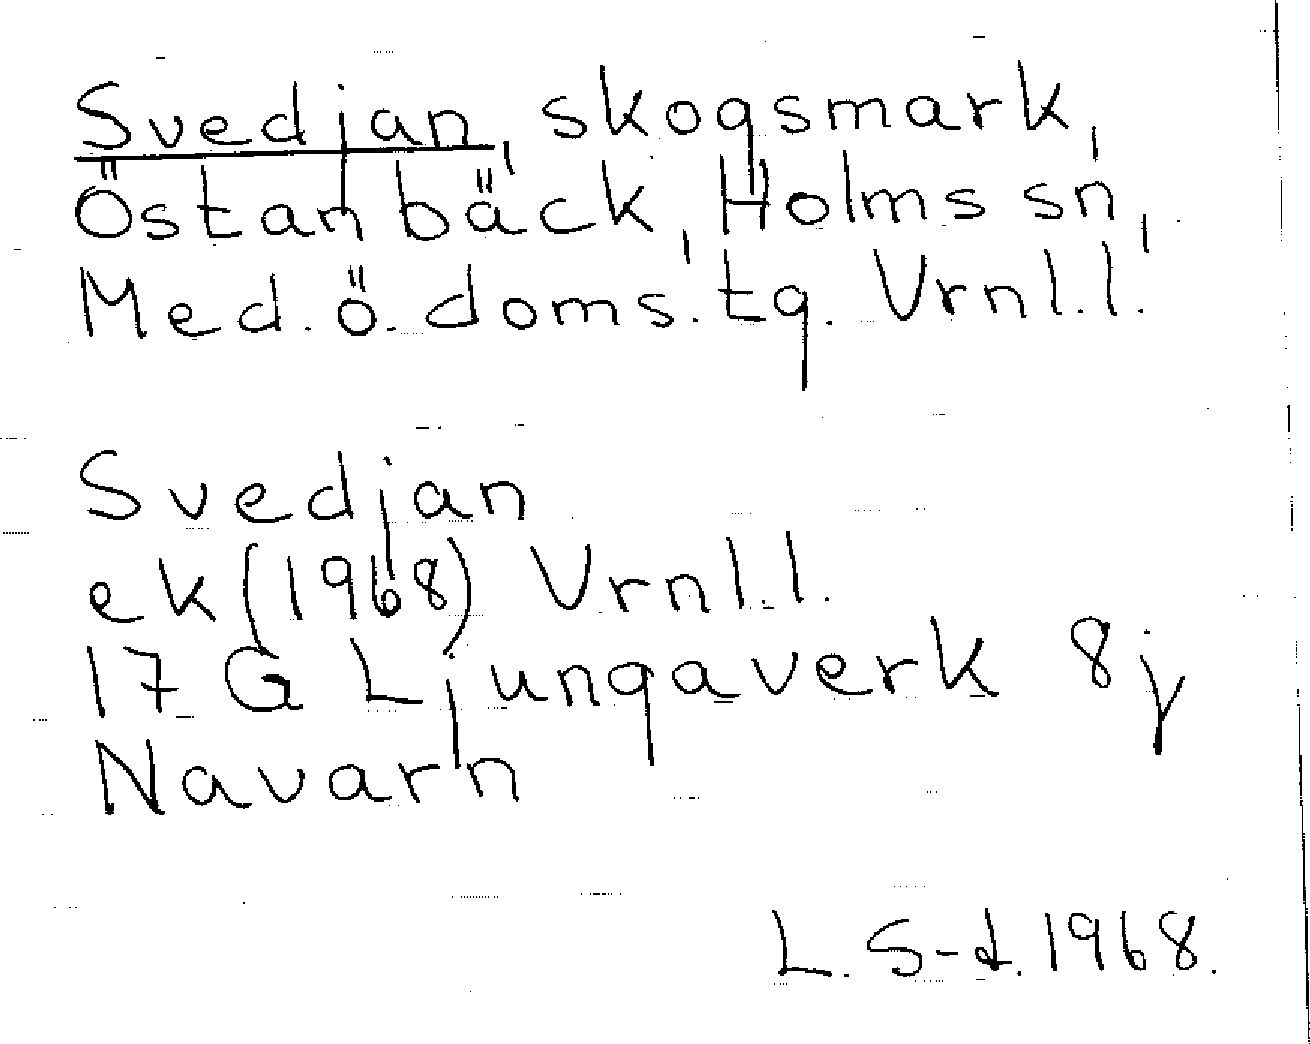 Svedjan, skogsmark,
Östanbäck, Holms sn,
Med. ö. doms. tg. Vrnl. l.
Svedjan
ek (1968) Vrnl. l.
17 G Ljungaverk 8 j
Navarn
L. S-d. 1968.